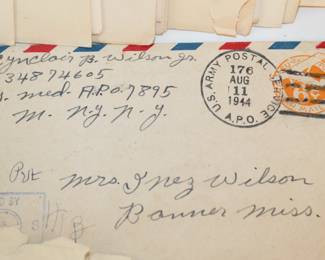 Synclair B. Wilson Jr.
34874605
med. A.P.O. 7895
℅ P.M. N.Y. N.Y.
U.S. ARMY POSTAL SERVICE
176
AUG
11
1944
A.P.O.
6¢
Pvt
Mrs. Inez Wilson
Banner Miss.
BY